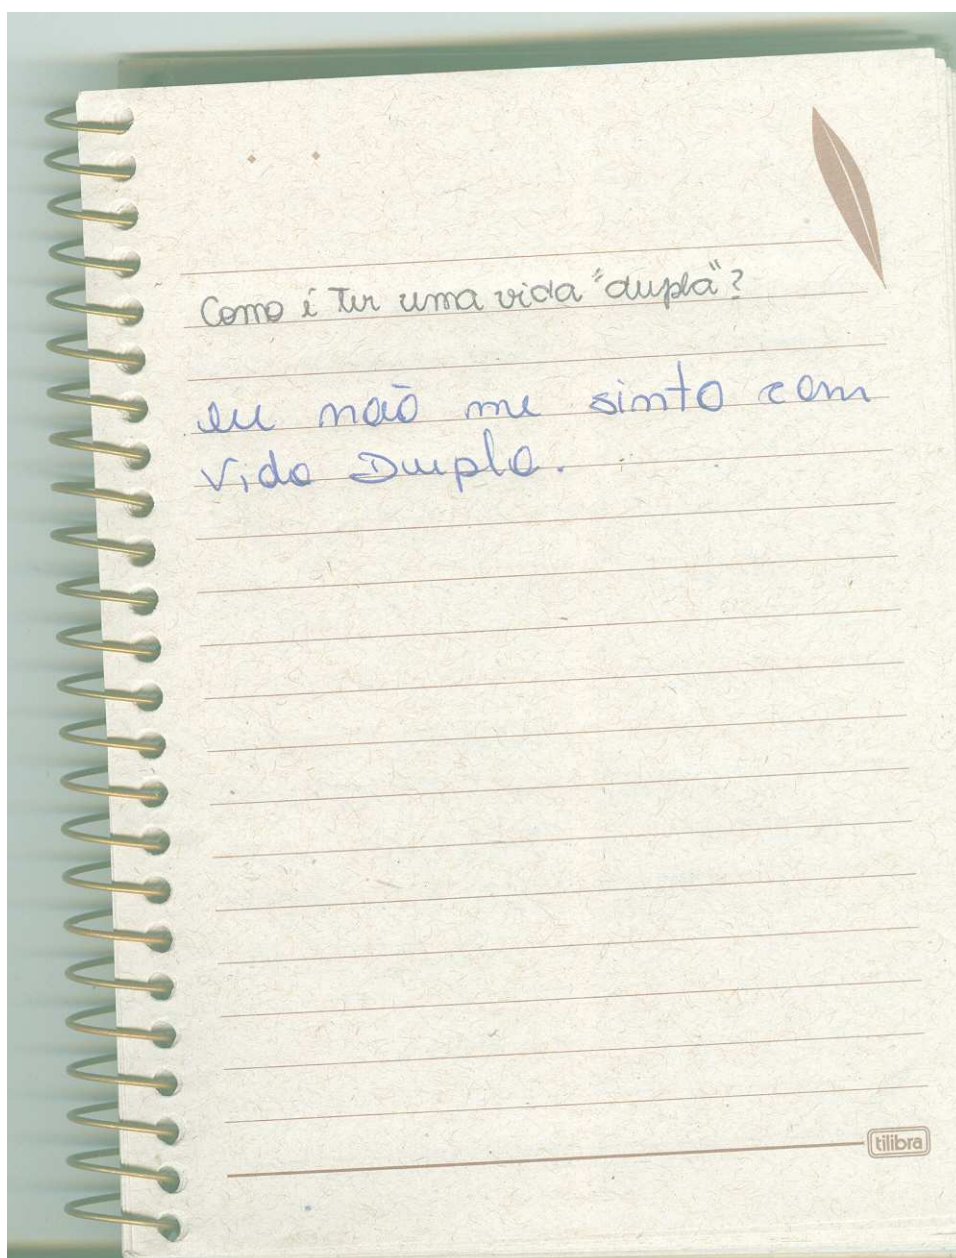 Como é Ter uma vida "dupla"?
eu não me sinto com
Vida Dupla.
tilibra